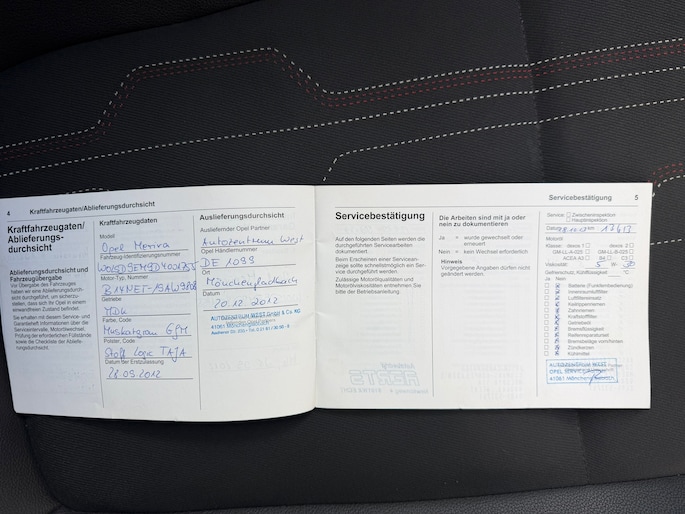 4 Kraftfahrzeugaten/Ablieferungsdurchsicht
Kraftfahrzeugaten/
Ablieferungs-
durchsicht
Ablieferungsdurchsicht und
Fahrzeugübergabe
Vor Übergabe des Fahrzeuges
haben wir eine Ablieferungsdurch-
sicht durchgeführt, um sicherzu-
stellen, dass sich Ihr Opel in einem
einwandfreien Zustand befindet.
Sie erhalten mit diesem Service- und
Garantieheft Informationen über die
Serviceintervalle, Motorölwechsel,
Prüfung der erforderlichen Füllstände
sowie die Checkliste der Abliefe-
rungsdurchsicht.
Kraftfahrzeugdaten
Modell
Opel Meriva
Fahrzeug-Identifizierungsnummer
Motor-Typ, Nummer
Getriebe
Farbe, Code
Polster, Code
Stoff Logic TAJA
Datum der Erstzulassung
28.09.2012
Auslieferungsdurchsicht
Ausliefernder Opel Partner
Autozentrum West
Opel Händlernummer
DE 1099
Ort
Mönchengladbach
Datum
20.12 2012
AUTOZENTRUM WEST GmbH & Co. KG
41061 Mönchengladbach
Servicebestätigung 5
Servicebestätigung
Auf den folgenden Seiten werden die
durchgeführten Servicearbeiten
dokumentiert.
Beim Erscheinen einer Servicean-
zeige sollte schnellstmöglich ein Ser-
vice durchgeführt werden.
Zulässige Motorölqualitäten und
Motorölviskositäten entnehmen Sie
bitte der Betriebsanleitung.
Die Arbeiten sind mit ja oder
nein zu dokumentieren
Ja = wurde gewechselt oder
erneuert
Nein = kein Wechsel erforderlich
Hinweis
Vorgegebene Angaben dürfen nicht
geändert werden.
Service: Zwischeninspektion
Hauptinspektion
Datum
Motoröl
Klasse: dexos 1 dexos 2
GM-LL-A-025 GM-LL-B-025
ACEA A3 B4 C3
Viskosität: 5 W- 30
Gefrierschutz, Kühlflüssigkeit °C
Ja Nein
Batterie (Funkfernbedienung)
Innenraumluftfilter
Luftfiltereinsatz
Keilrippenriemen
Zahnriemen
Kraftstofffilter
Getriebeöl
Bremsflüssigkeit
Reifenreparaturset
Bremsbeläge vorn/hinten
Zündkerzen
Kühlmittel
AUTOZENTRUM WEST
OPEL SERVICE